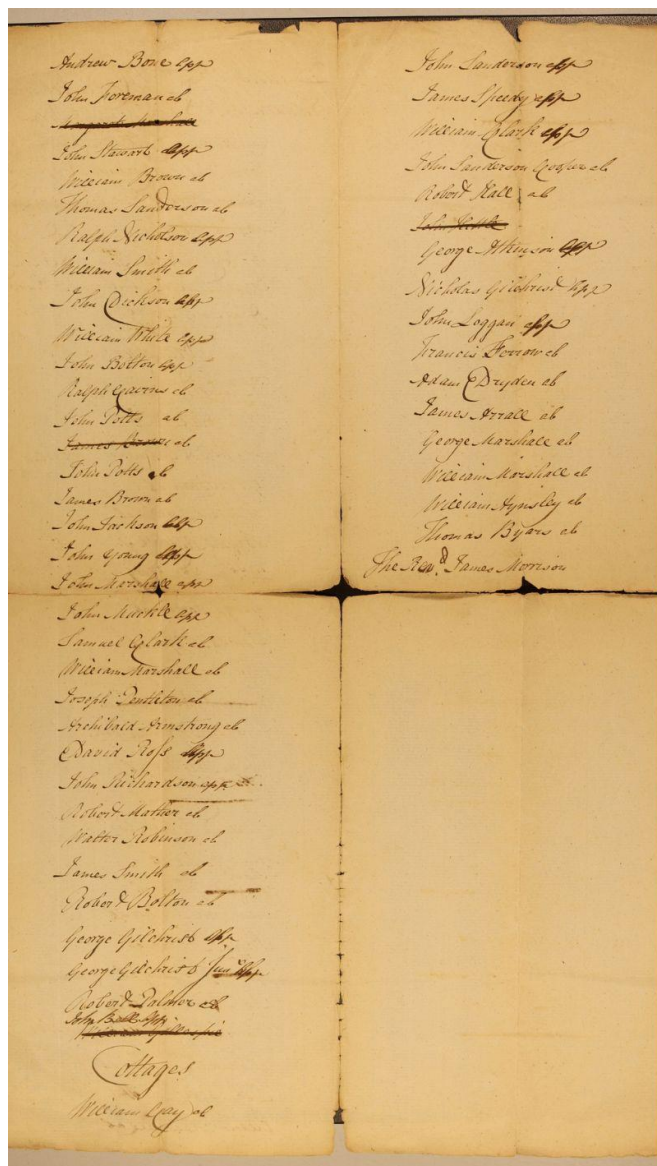 Andrew Bone app
John Foreman ab
Margaret Marshall
John Stewart app
William Brown ab
Thomas Sanderson ab
Ralph Nicholson app
William Smith ab
John Dickson app
William White app
John Bolton app
Ralph Gavens ab
John Potts ab
James Brown ab
John Potts ab
James Brown ab
John Jackson app
John Young app
John Marshall app
John Mackle app
Samuel Clark ab
William Marshall ab
Joseph Pentleton ab
Archibald Armstrong ab
David Ross app
John Richardson app
Robert Mather ab
Walter Robinson ab
James Smith ab
Robert Bolton ab
George Gilchrist app
George Gilchrist Junr app
Robert Palmer ab
John Bell app
William Gillespie
Cottages
William Gray ab
John Sanderson app
James Speedy app
William Clark app
John Sanderson Cooper ab
Robert Hall ab
John
George Atkinson app
Nicholas Gilchrist app
John Loggan app
Francis Forrow ab
Adam Dryden ab
James Arrall ab
George Marshall ab
William Marshall ab
William Aynsley ab
Thomas Byars ab
The Revd. James Morrison